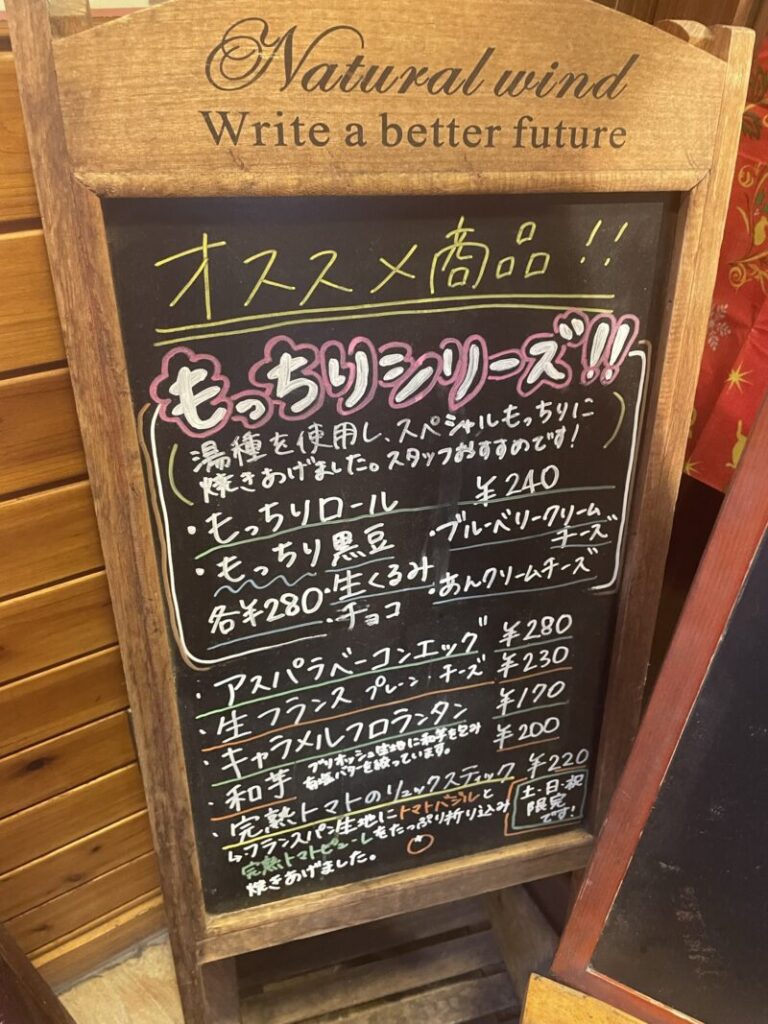 Natural wind
Write a better future
オススメ商品!!
もっちりシリーズ!!
湯種を使用し、スペシャルもっちりに
焼きあげました。スタッフおすすめです!
・もっちりロール ¥240
・もっちり黒豆 ・ブルーベリークリーム
チーズ
各¥280 ・生くるみ ・あんクリームチーズ
・チョコ
・アスパラベーコンエッグ ¥280
・生フランス プレーン チーズ ¥230
・キャラメルフロランタン ¥170
・和芋 ブリオッシュ生地に和芋を包み ¥200
有塩バターを絞っています。
・完熟トマトのリュックスティック ¥220
↳フランスパン生地にトマトバジルと
完熟トマトピューレをたっぷり折り込み
焼きあげました。
土・日・祝
限定
です!